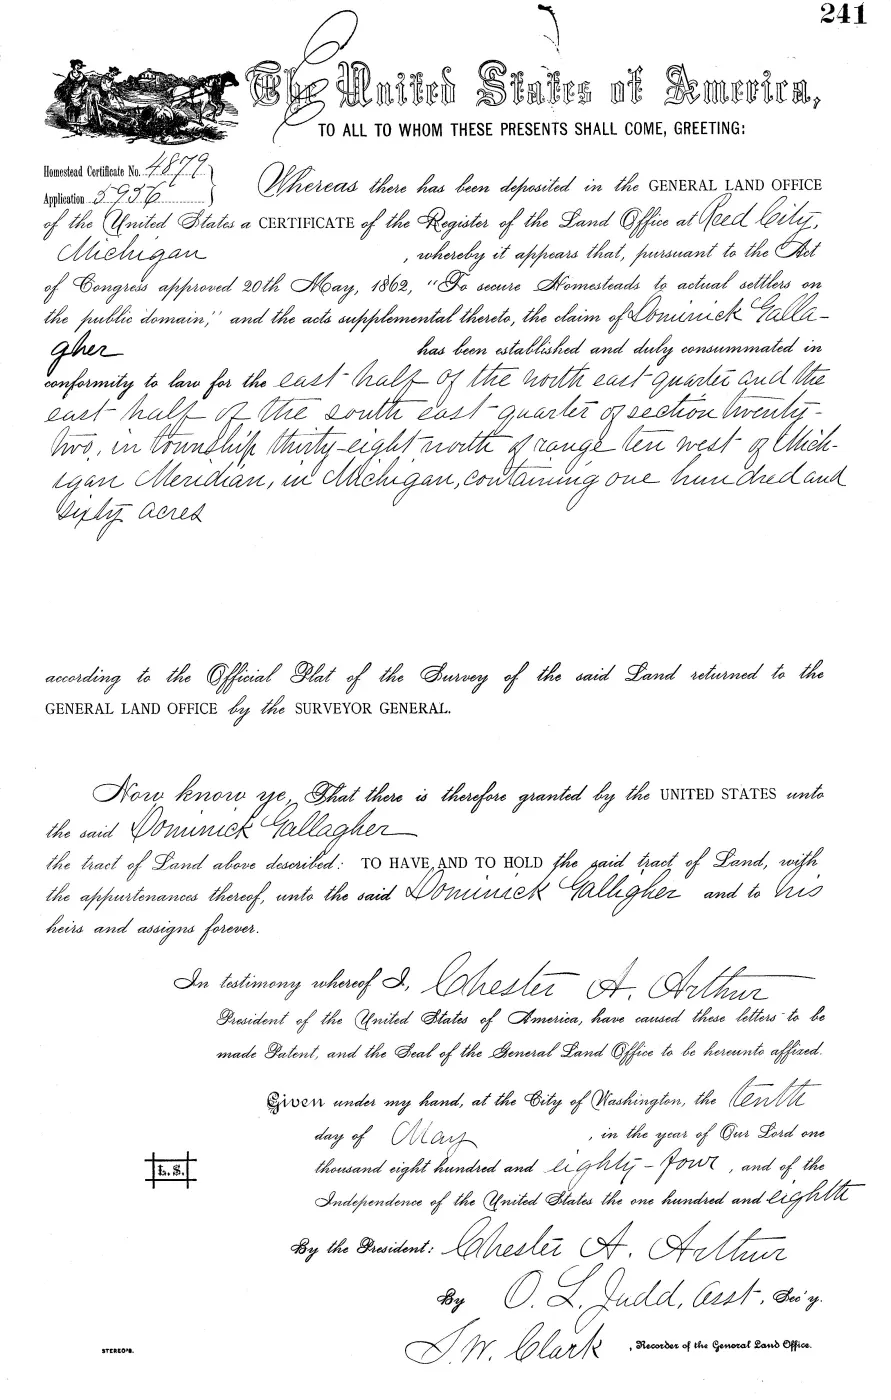 241
The United States of America,
TO ALL TO WHOM THESE PRESENTS SHALL COME, GREETING:
Homestead Certificate No. 4879
Application 5956
Whereas there has been deposited in the GENERAL LAND OFFICE
of the United States a CERTIFICATE of the Register of the Land Office at Reed City,
Michigan , whereby it appears that, pursuant to the Act
of Congress approved 20th May, 1862, "To secure Homesteads to actual settlers on
the public domain," and the acts supplemental thereto, the claim of Dominick Galla-
gher has been established and duly consummated in
conformity to law for the east half of the north east quarter and the
east half of the south east quarter of section twenty-
two, in township thirty-eight north of range ten west of Mich-
igan Meridian, in Michigan, containing one hundred and
sixty acres
according to the Official Plat of the Survey of the said Land returned to the
GENERAL LAND OFFICE by the SURVEYOR GENERAL.
Now know ye, That there is therefore granted by the UNITED STATES unto
the said Dominick Gallagher
the tract of Land above described: TO HAVE AND TO HOLD the said tract of Land, with
the appurtenances thereof, unto the said Dominick Galligher and to his
heirs and assigns forever.
In testimony whereof I, Chester A. Arthur
President of the United States of America, have caused these letters to be
made Patent, and the Seal of the General Land Office to be hereunto affixed.
Given under my hand, at the City of Washington, the tenth
day of May , in the year of Our Lord one
thousand eight hundred and eighty-four , and of the
Independence of the United States the one hundred and eighth
L. S.
By the President: Chester A. Arthur
By O. L. Judd, Asst. Sec'y.
S. W. Clark , Recorder of the General Land Office.
STEREO'S.